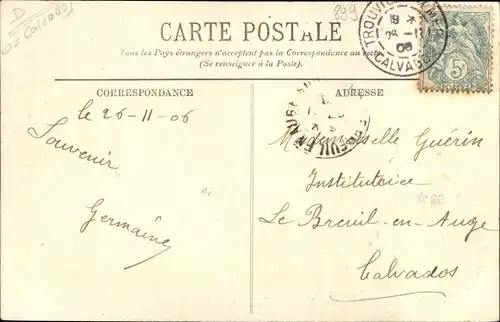 D
Calvados
899
CARTE POSTALE
Tous les Pays étrangers n'acceptent pas la Correspondance au recto
(Se renseigner à la Poste).
TROUVILLE
CALVADOS
5c
CORRESPONDANCE
ADRESSE
le 26-11-06
Souvenir
Germaine
Mademoiselle Guérin
Institutrice
Le Breuil-en-Auge
Calvados